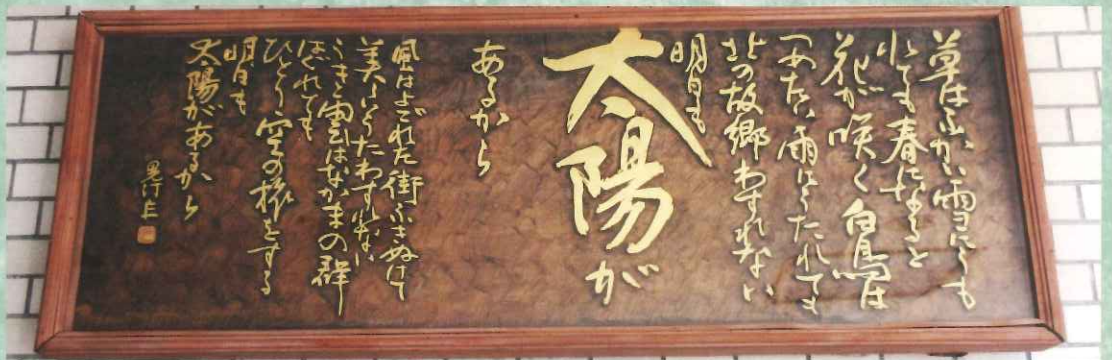 草はふかい雪にうも
れても春になると
花が咲く 白鳥は
つめたい雨にうたれても
北の故郷わすれない
明日も
太陽が
あるから
風はよごれた街ふきぬけて
美しいうたわすれない
うき雲はなかまの群
はぐれても
ひとり空の旅をする
明日も
太陽があるから